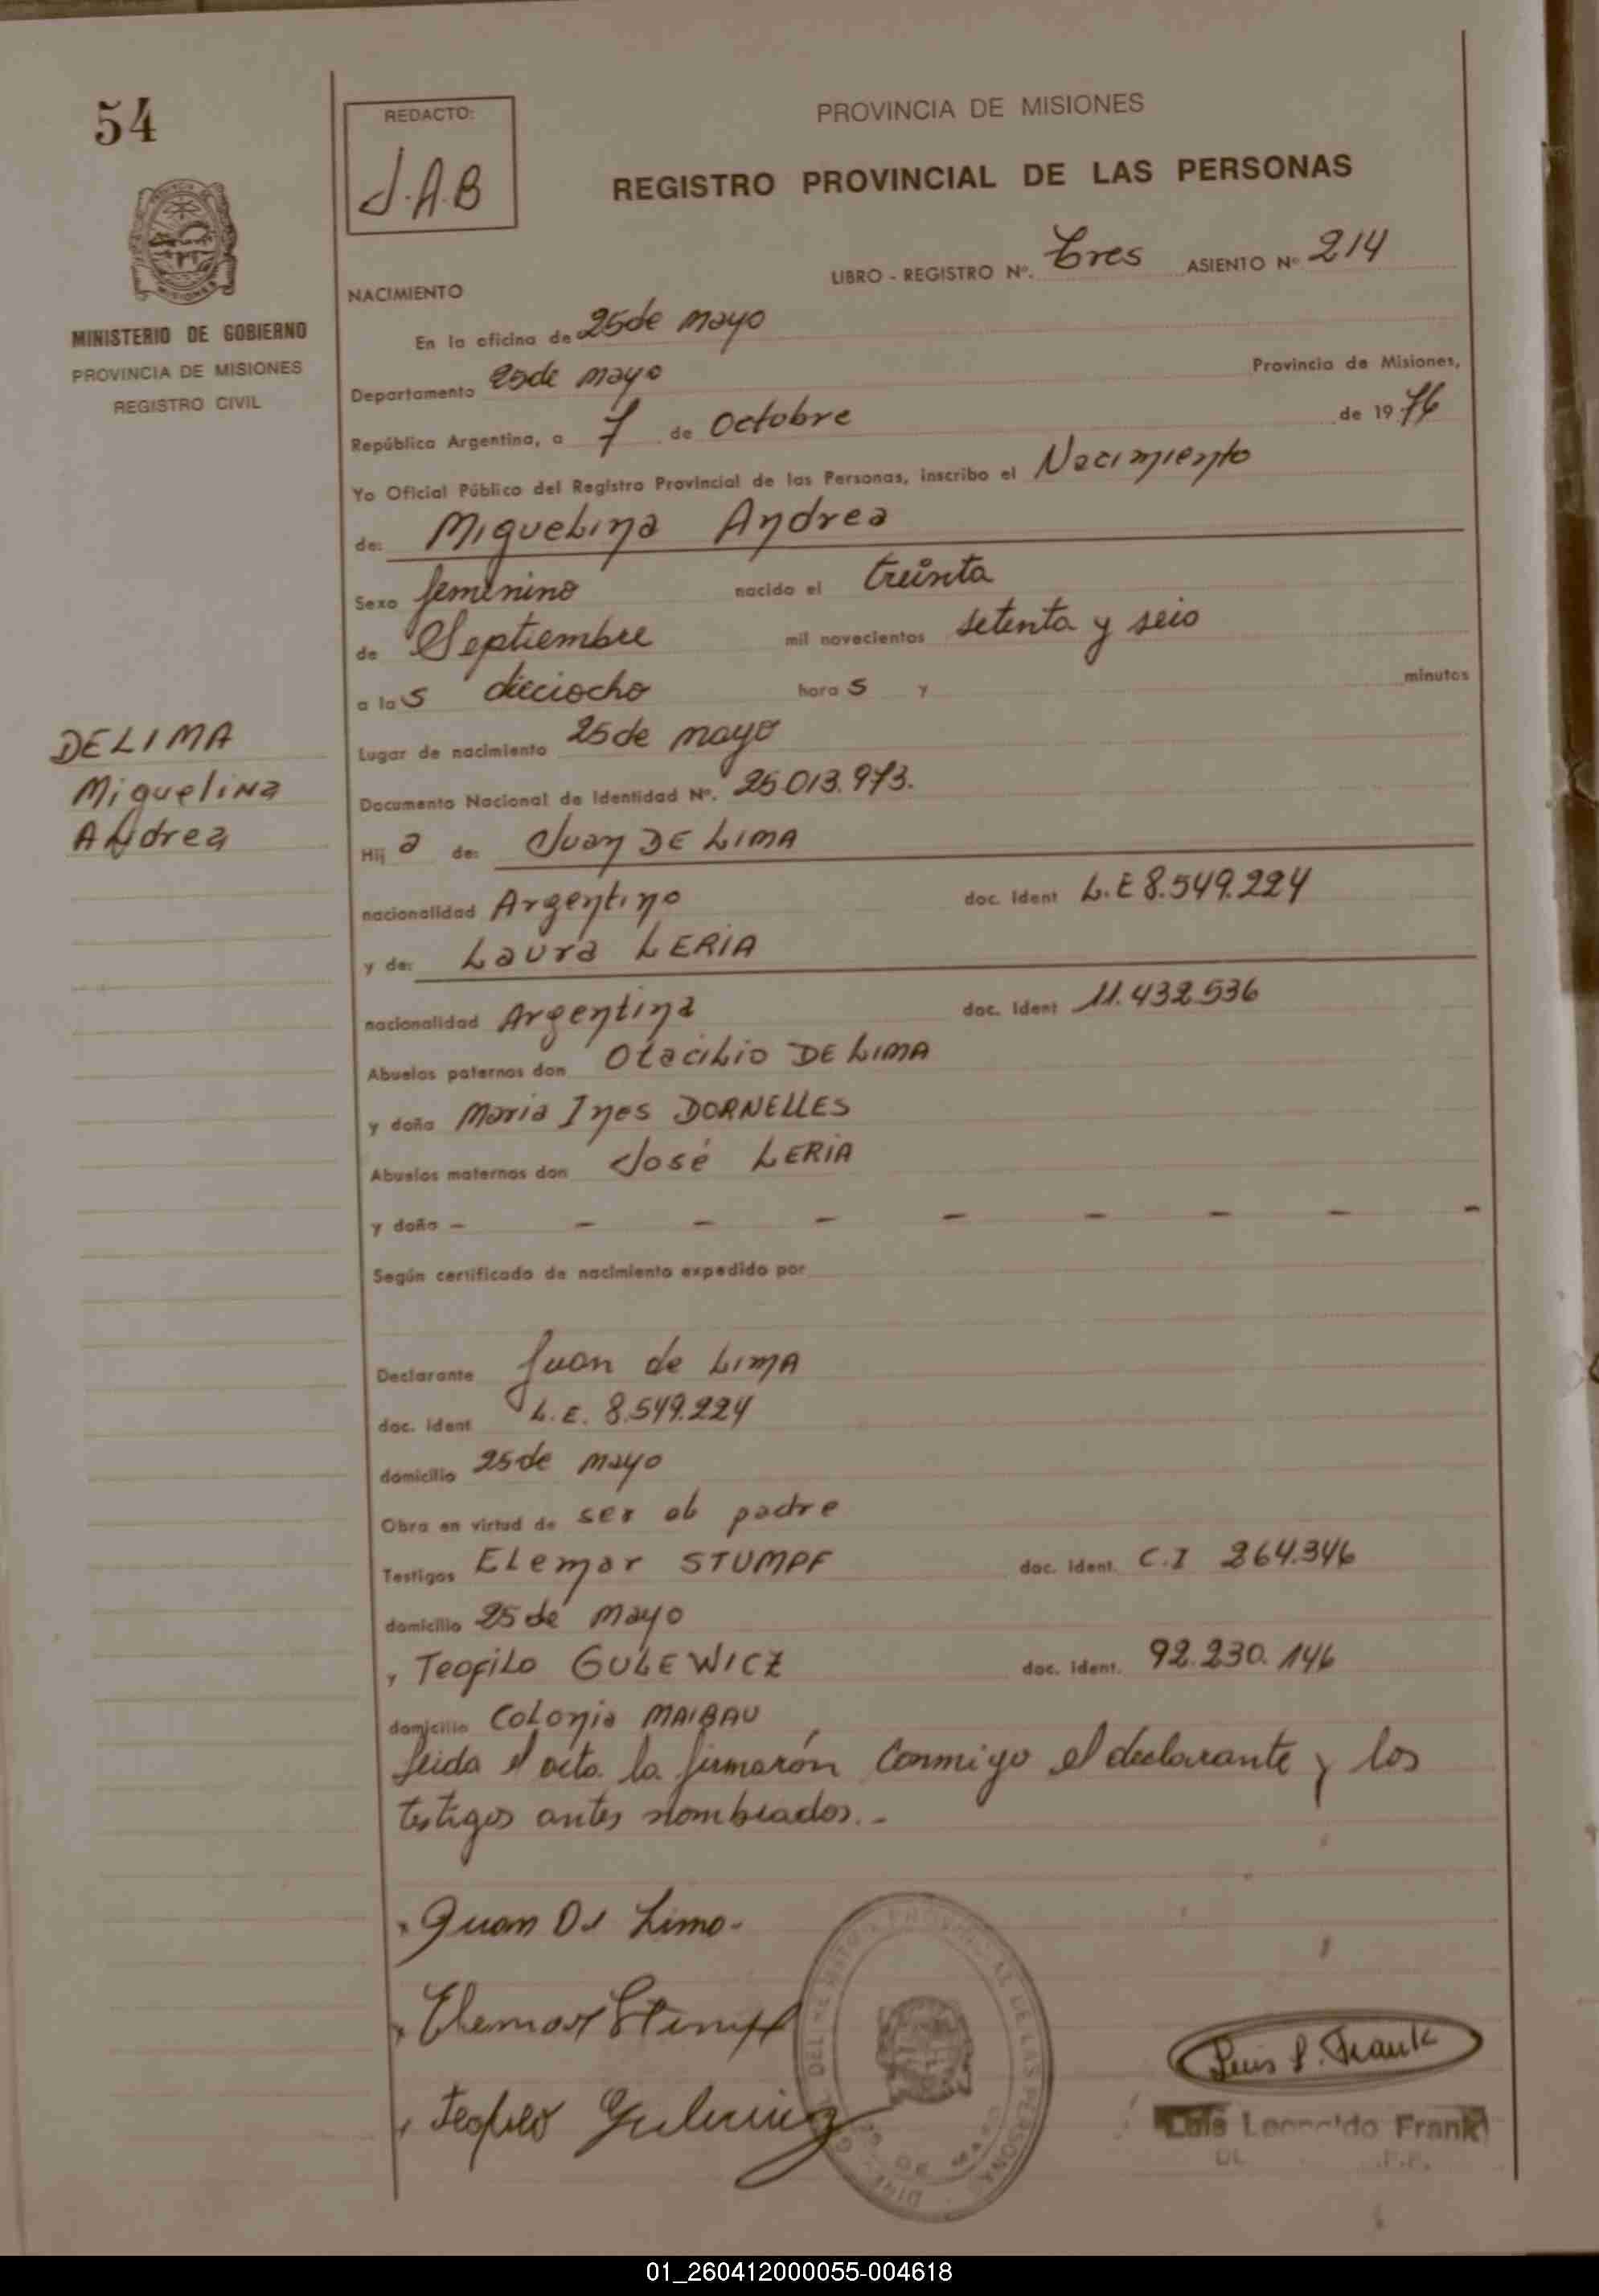 54
REDACTO:
J.A.B
PROVINCIA DE MISIONES
REGISTRO PROVINCIAL DE LAS PERSONAS
MISIONES
MINISTERIO DE GOBIERNO
PROVINCIA DE MISIONES
REGISTRO CIVIL
LIBRO - REGISTRO Nº. Tres ASIENTO Nº 214
NACIMIENTO
En la oficina de 25 de mayo
Departamento 25 de mayo Provincia de Misiones,
República Argentina, a 7 de Octobre de 1976
Yo Oficial Público del Registro Provincial de las Personas, inscribo el Nacimiento
de: Miguelina Andrea
Sexo femenino nacido el treinta
de Septiembre mil novecientos setenta y seis
a las dieciocho horas y minutos
Lugar de nacimiento 25 de mayo
Documento Nacional de Identidad Nº. 25.013.973.
DELIMA
Miguelina
Andrea
Hija de: Juan DE LIMA
nacionalidad Argentino doc. Ident L.E 8.549.224
y de: Laura LERIA
nacionalidad Argentina doc. Ident 11.432.536
Abuelos paternos don Otacilio DE LIMA
y doña Maria Ines DORNELLES
Abuelos maternos don José LERIA
y doña - - - - - - - - -
Según certificado de nacimiento expedido por
Declarante Juan de LIMA
doc. ident L.E. 8.549.224
domicilio 25 de mayo
Obra en virtud de ser el padre
Testigos Elemar STUMPF doc. Ident. C.I 264.346
domicilio 25 de mayo
y Teofilo GULEWICZ doc. Ident. 92.230.146
domicilio Colonia MAIBAU
leida el acta la firmarón conmigo el declarante y los
testigos antes nombrados.-
Juan De Lima-
Elemar Stumpf
Teofilo Gulewicz
Luis L. Frank
Luis Leopoldo Frank
01_260412000055-004618